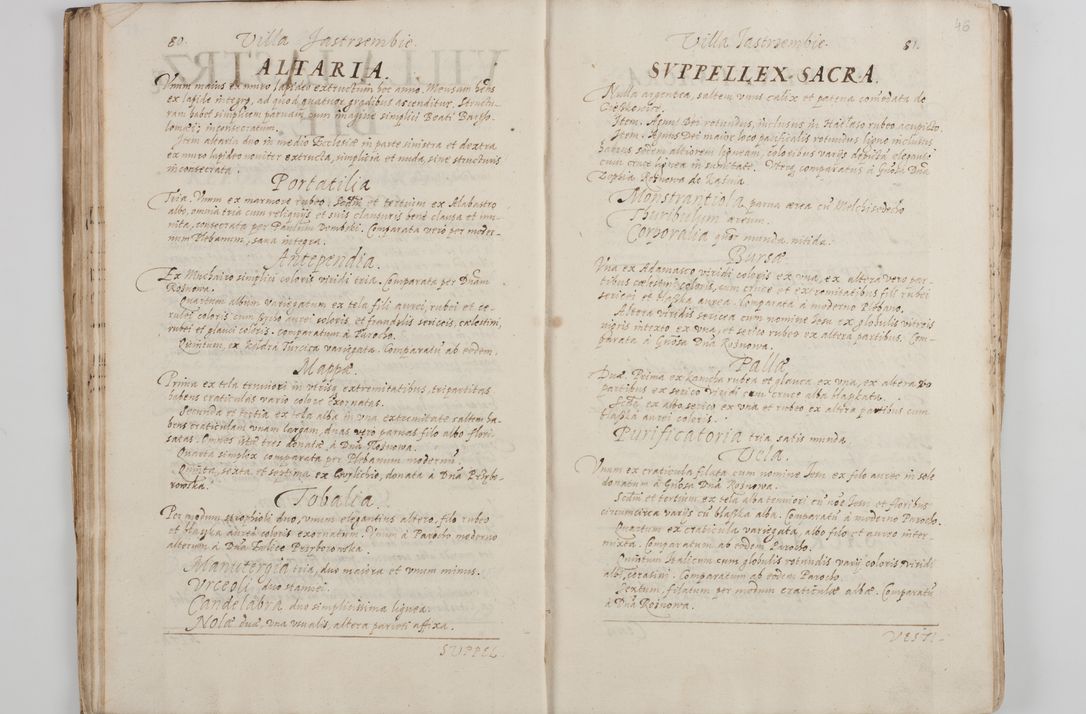 80. Villa Jastrzembie.
ALTARIA.
Vnum maius ex muro lapideo extructum hoc anno. Mensam hẽns
ex lapide integro, ad quod quatuor gradibus ascenditur. Structu-
ram habet simplicem paruam cum imagine simplici Beati Bartho-
lomæi; inconsecratum.
Item altaria duo in medio Ecclesiæ in parte sinistra et dextra
ex muro lapideo nouiter extructa, simplicia et nuda, sine structuris
inconsecrata.
Portatilia
Tria. Vnum ex marmore rubeo, Scdm et tertium ex Alabastro
albo, omnia tria cum reliquijs et suis clausuris bene clausa et mu-
nita, consecrata per Paulum Dembski. Comparata vero per moder-
num Plebanum, sana integra.
Antependia.
Ex Muchairo simplici coloris viridi tria. Comparata per Dnam
Rosnowa.
Quartum album variegatum ex tela fili aurei, rubei et ce-
rulei coloris cum aurei coloris et frandzlis sericeis, cælestini,
rubei et glauci coloris. comparatum à Parocho.
Quintum, ex Kildra Turcica variegata. Comparatũ ab eodem.
Mappæ.
Prima ex tela tenuiori in vtrisq extremitatibus, tripartitas
habens craticulas vario colore exornatas.
Secunda et tertia ex tela alba in vna extremitate saltem ha-
bens craticulam vnam largam, duas vero paruas filo albo flori-
satas. Omnes istæ tres donatæ à Dña Rosnowa.
Quarta simplex comparata per Plebanum modernũ.
Quinta, sexta et septima ex donata à Dña Przybo-
rowska.
Tobalia.
Per modum strophioli duo, vnum elegantius altero, filo rubeo
et blaszka aurei coloris exornatum. Vnum à Parocho moderno
alterum à Dña Przyborowska.
Manutergia tria, duo maiora et vnum minus.
Vrceoli duo stannei.
Candelabra duo simplicissima lignea.
Nolæ duæ, vna visualis, altera parieti affixa.
SVPPEL-
46
Villa Jastrzembie. 81.
SVPPELLEX SACRA.
Nulla argentea, saltem vnus calix et patena comodata de
Item. Agnus Dei rotundus, inclusus in Hatłaso rubeo acupicto.
Item. Agnus Dei maior loco pacificalis rotundus ligno inclusus,
habens altiorem ligneam, coloribus varijs depicta eleganti
cum cruce lignea in sumitate. Vterq comparatus à Gñosa Dña
Zophia Rosnowa de
Monstrantiola parua ærea cũ Melchisedecho
Thuribulum æreum.
Corporalia munda, nitida.
Bursæ
Vna ex Adamasco viridi coloris ex vna, ex altera vero par-
tibus cælestini coloris, cum cruce et extremitatibus fili rubei
sericei et blaszka aurea. Comparata à moderno Plbano.
Altera viridis sericea cum nomine Iesu ex globulis vitreis
nigris intexto ex vna, et serico rubeo ex altera partibus. Com-
parata à Gñosa Dña Rosnowa.
Pallæ
Duæ. Prima ex kamcha rubea et glauca ex vna, ex altera vo
partibus ex serico viridi cum cruce alba blaszkata.
ex albo serico ex vna et rubeo ex altera partibus cum
blaszka aurei coloris.
Purificatoria tria, satis munda.
Vela.
Vnum ex craticula filata cum nomine Iesu ex filo aureo in sole
donatum à Gñosa Dña Rosnowa.
Scdm et tertium ex tela alba tenuiori cũ nõe Iesu et floribus
circumcirca varijs cũ blaszka alba. Comparatũ à moderno Parocho.
Quartum ex craticula variegata, albo filo et aureo inter-
mixta. Comparatum ab eodem Parocho.
Quintum Italicum cum globulis rotundis varij coloris viridi
albi, Comparatum ab eodem Parocho.
Sextum, filatum per modum craticulæ albæ. Comparatũ
à Dña Rosnowa.
VEST-